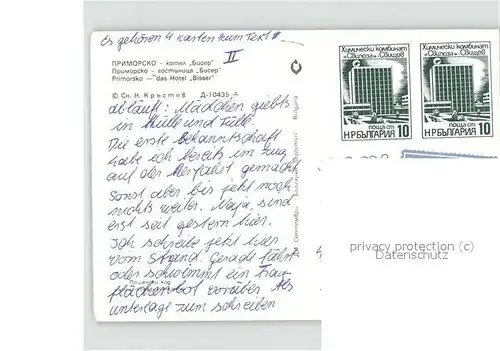 Es gehören 4 Karten zum Text
II
ПРИМОРСКО - хотел „Бисер"
Приморско - гостиница „Бисер"
Primorsko - das Hotel „Bisser"
© Сн. Н. Кръстев Д-10435-А
abläuft: Mädchen giebts
in Hülle und Fülle.
Die erste Bekanntschaft
habe ich bereits im Zug
auf der Herfahrt gemacht
Sonst aber bis jetzt noch
nichts weiter. Naja, sind
erst seit gestern hier.
Ich schreibe jetzt hier
vom Strand. Gerade fährt
oder schwimmt ein
flächenbot vorüber Als
Пощенски код
unterlage zum schreiben
Bulgaria
Септември
Химически комбинат
„Свилоза"-Свищов
поща ст.
Н Р БЪЛГАРИЯ 10
Химически комбинат
„Свилоза"-Свищов
поща ст.
Н Р БЪЛГАРИЯ 10
privacy protection (c)
Datenschutz